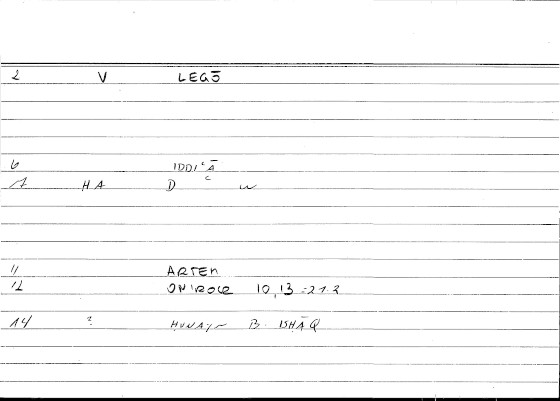 2 V LEGŌ
6 IDDIʿĀ
7 HA D w
11 ARTEM
12 ONIROCR 10,13 -21.2
14 ? HUNAYN B. ISHĀQ